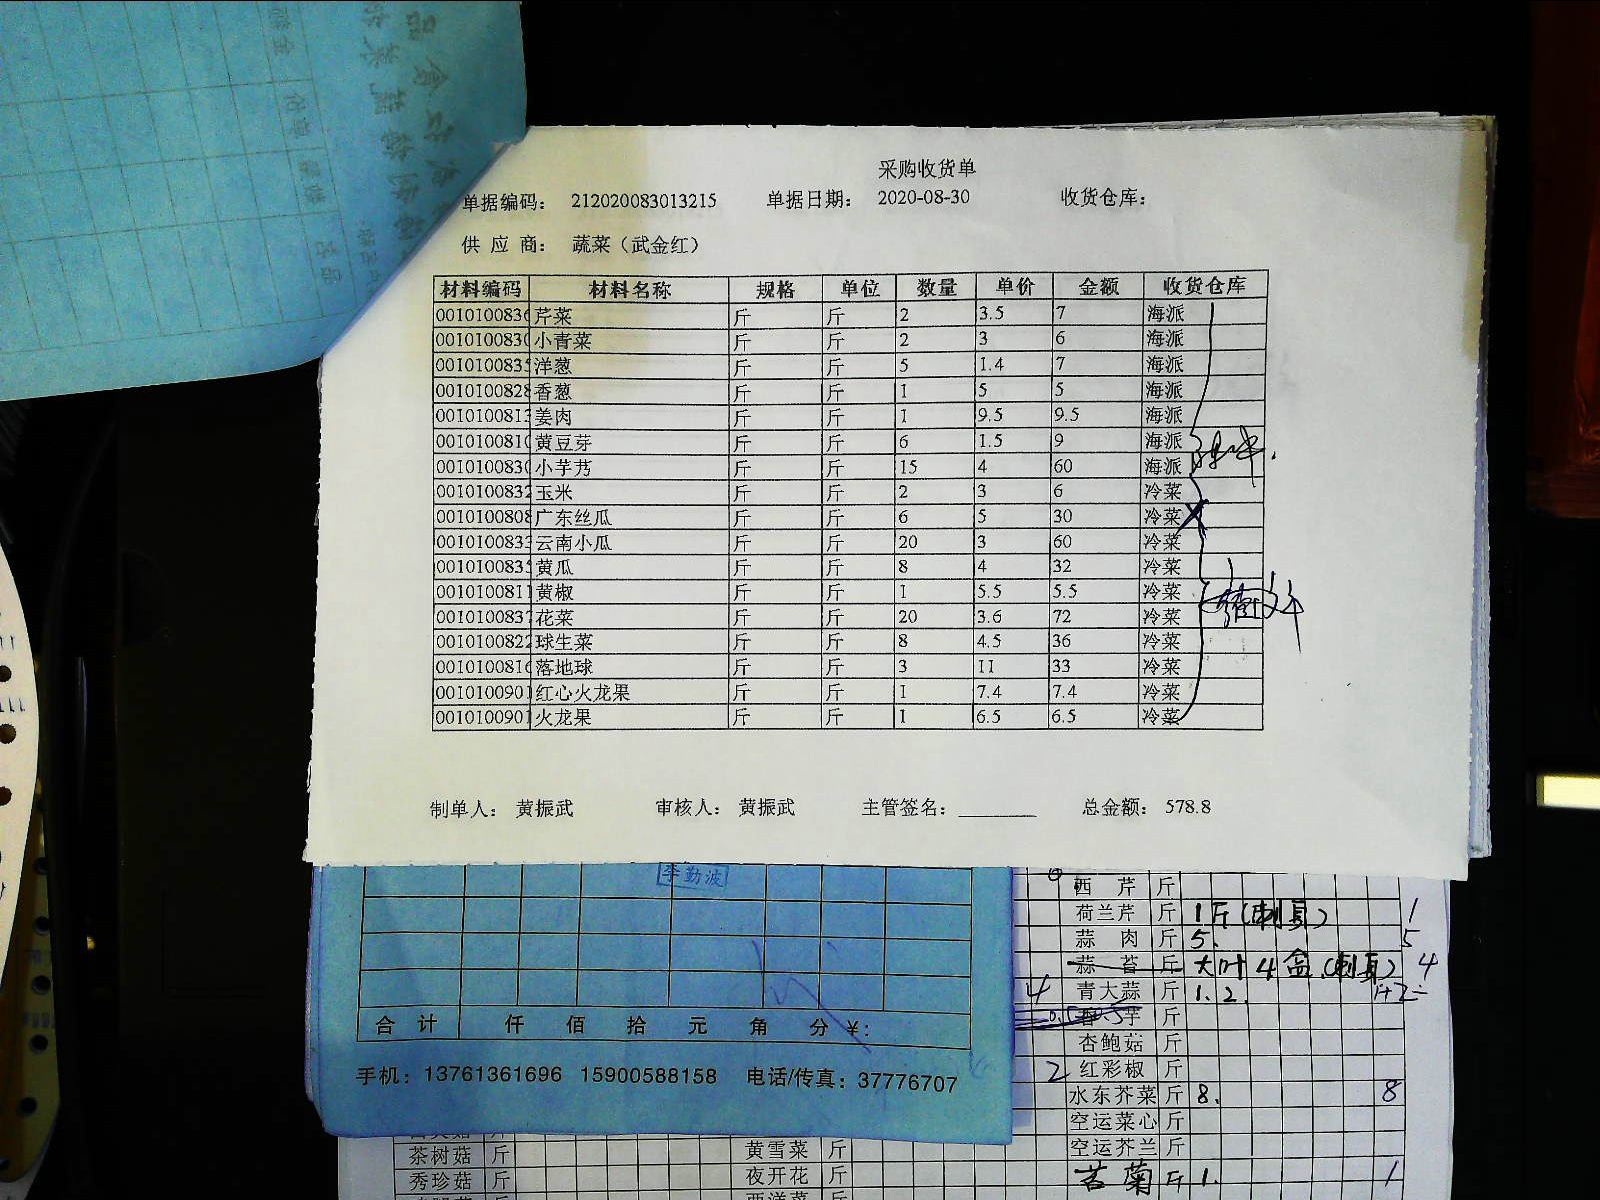 采购收货单
单据编码： 212020083013215 单据日期： 2020-08-30 收货仓库：
供 应 商： 蔬菜（武金红）
材料编码 材料名称 规格 单位 数量 单价 金额 收货仓库
001010083 芹菜 斤 斤 2 3.5 7 海派
001010083 小青菜 斤 斤 2 3 6 海派
001010083 洋葱 斤 斤 5 1.4 7 海派
0010100828 香葱 斤 斤 1 5 5 海派
001010081 姜肉 斤 斤 1 9.5 9.5 海派
001010081 黄豆芽 斤 斤 6 1.5 9 海派
001010083 小芋艿 斤 斤 15 4 60 海派
0010100832 玉米 斤 斤 2 3 6 冷菜
0010100808 广东丝瓜 斤 斤 6 5 30 冷菜
001010083 云南小瓜 斤 斤 20 3 60 冷菜
001010083 黄瓜 斤 斤 8 4 32 冷菜
001010081 黄椒 斤 斤 1 5.5 5.5 冷菜
001010083 花菜 斤 斤 20 3.6 72 冷菜
0010100822 球生菜 斤 斤 8 4.5 36 冷菜
001010081 落地球 斤 斤 3 11 33 冷菜
001010090 红心火龙果 斤 斤 1 7.4 7.4 冷菜
001010090 火龙果 斤 斤 1 6.5 6.5 冷菜
制单人： 黄振武 审核人： 黄振武 主管签名： 总金额： 578.8
李勤波
合 计 仟 佰 拾 元 角 分 ¥:
手机：13761361696 15900588158 电话/传真：37776707
西 芹 斤
荷兰芹 斤 1斤 1
蒜 肉 斤 5. 5
蒜 苔 斤 大叶4盒 4
4 青大蒜 斤 1.2.
斤
杏鲍菇 斤
2 红彩椒 斤
水东芥菜 斤 8. 8
空运菜心 斤
空运芥兰 斤
苦菊 斤 1. 1
茶树菇 斤 黄雪菜 斤
秀珍菇 斤 夜开花 斤
西洋菜